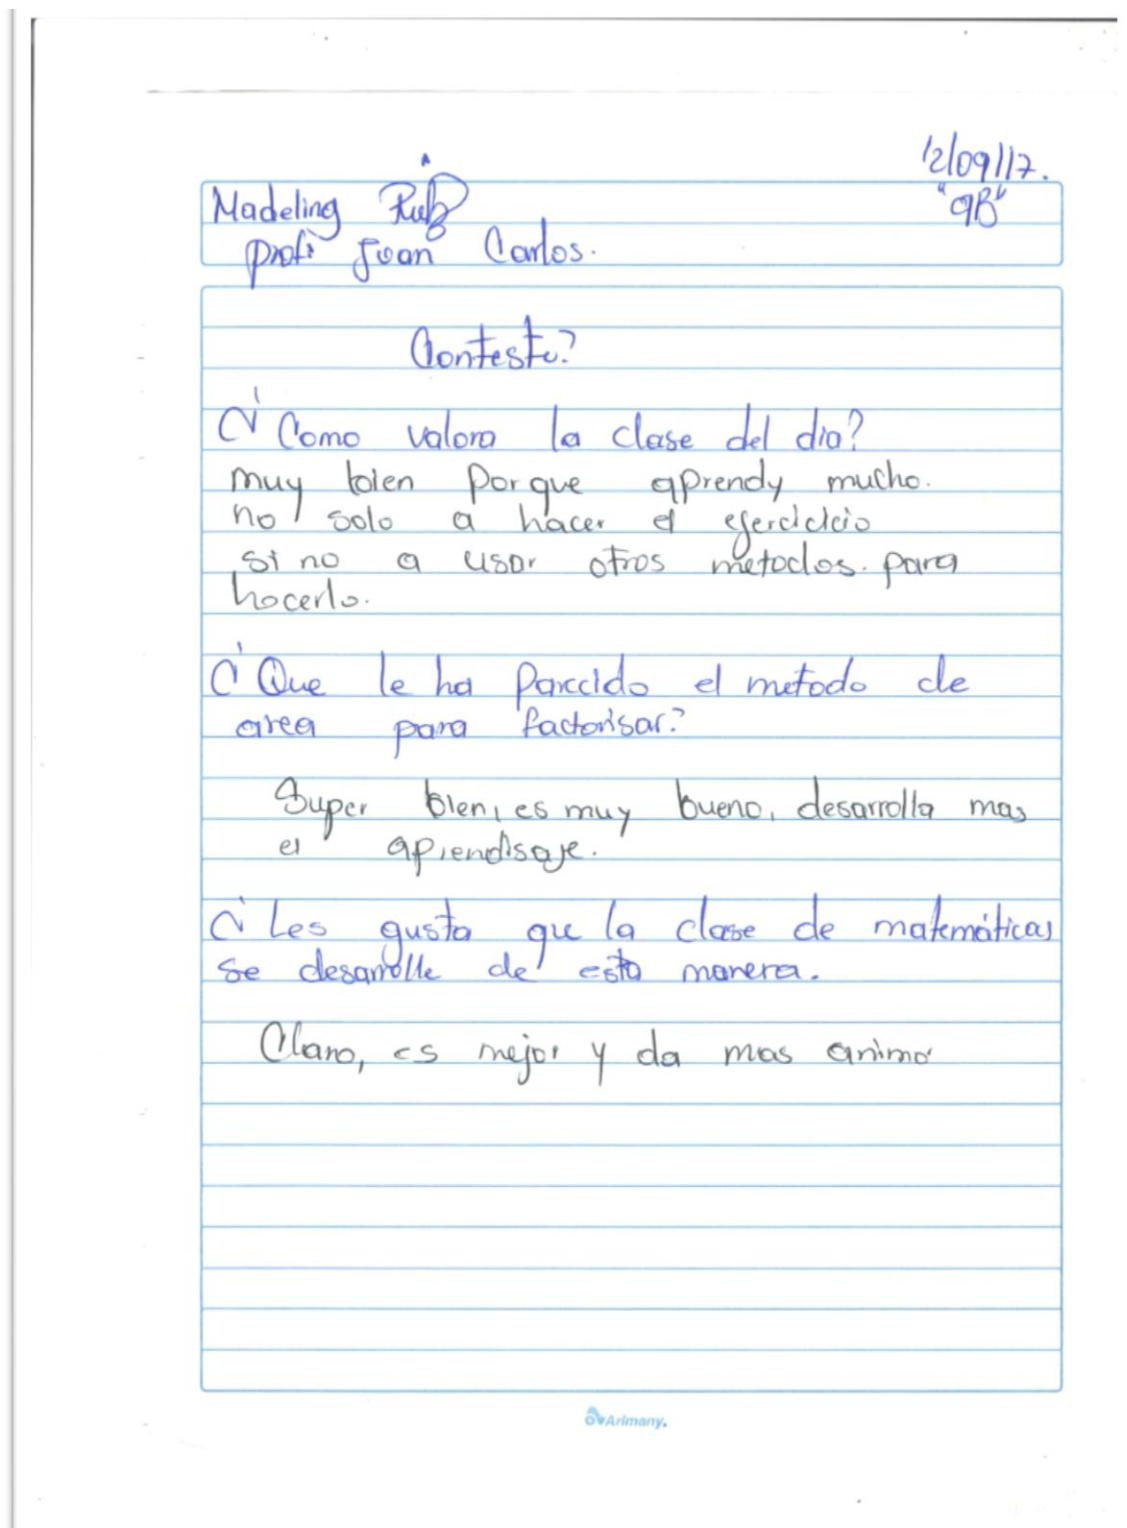 12/09/17.
Madeling Ruiz
"9B"
Prof: Juan Carlos.
Conteste?
¿Como valora la clase del dia?
muy bien Porque aprendy mucho.
no solo a hacer el ejercicicio
si no a usar otros metodos. para
hacerlo.
¿Que le ha Parecido el metodo de
area para factorisar?
Super bien, es muy bueno, desarrolla mas
el aprendisaje.
¿Les gusta que la clase de matemáticas
se desarrolle de esta manera.
Claro, es mejor y da mas animo
Arimany.